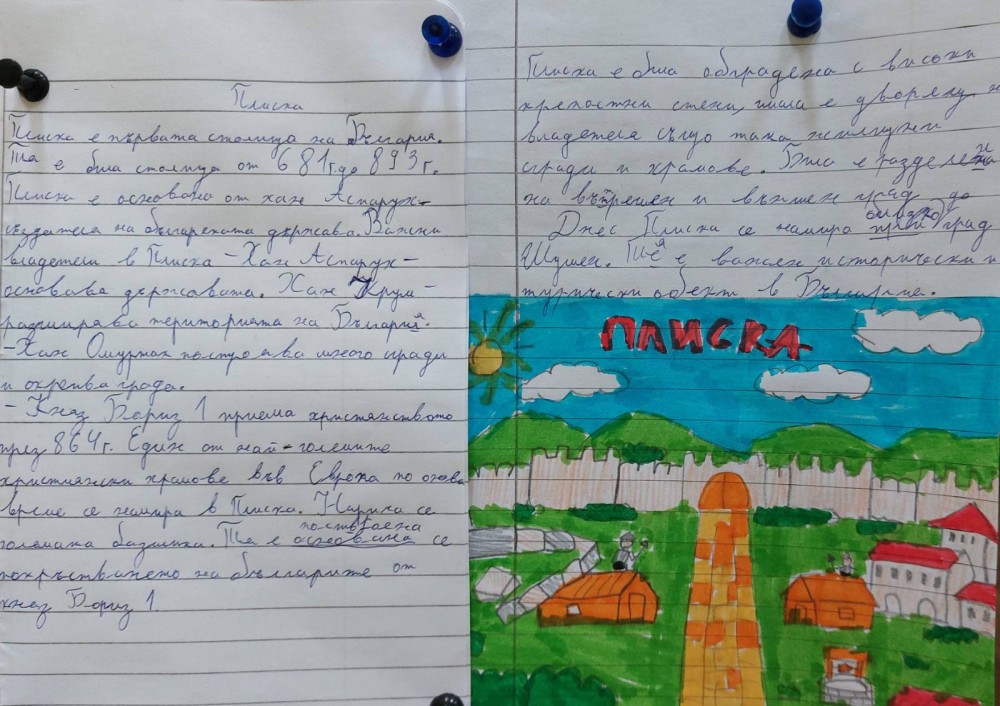 Плиска
Плиска е първата столица на България.
Тя е била столица от 681г. до 893г.
Плиска е основана от хан Аспарух-
създателя на българската държава. Важни
владетели в Плиска - Хан Аспарух -
основава държавата. Хан Крум -
разширява територията на България.
- Хан Омуртаг построява много сгради
и укрепва града.
- Княз Бориз 1 приема християнството
през 864г. Един от най-големите
християнски храмове във Европа по онова
време се намира в Плиска. Нарича се
построена
голямата базилика. Тя е основана се
покръстването на българите от
княз Бориз 1
Плиска е била обградена с високи
крепостни стени, имала е дворец на
владетеля също така жилищни
сгради и храмове. Била е разделена
на вътрешен и външен град до
близко
Днес Плиска се намира град
Шумен. Тя е важен исторически и
турически обект в България.
ПЛИСКА